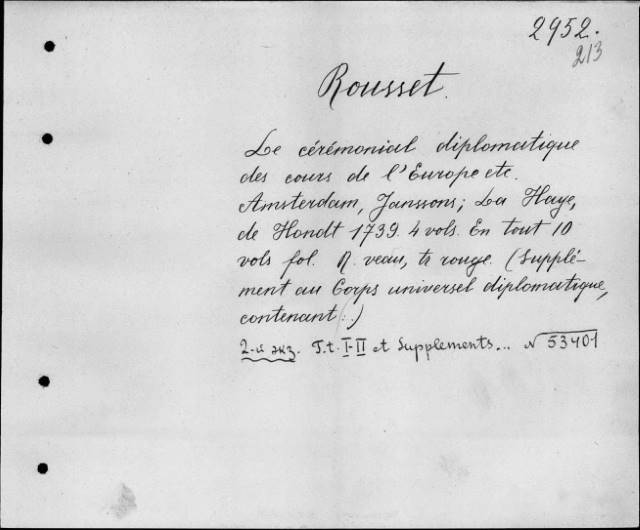 2952.
213
Rousset.
Le cérémonial diplomatique
des cours de l'Europe etc.
Amsterdam, Janssons; La Haye,
de Hondt 1739. 4 vols. En tout 10
vols fol. R. veau, tr rouge. (Supplé-
ment au Corps universel diplomatique,
contenant :.)
2-й экз. T.t. I-II et Supplements... N 53401